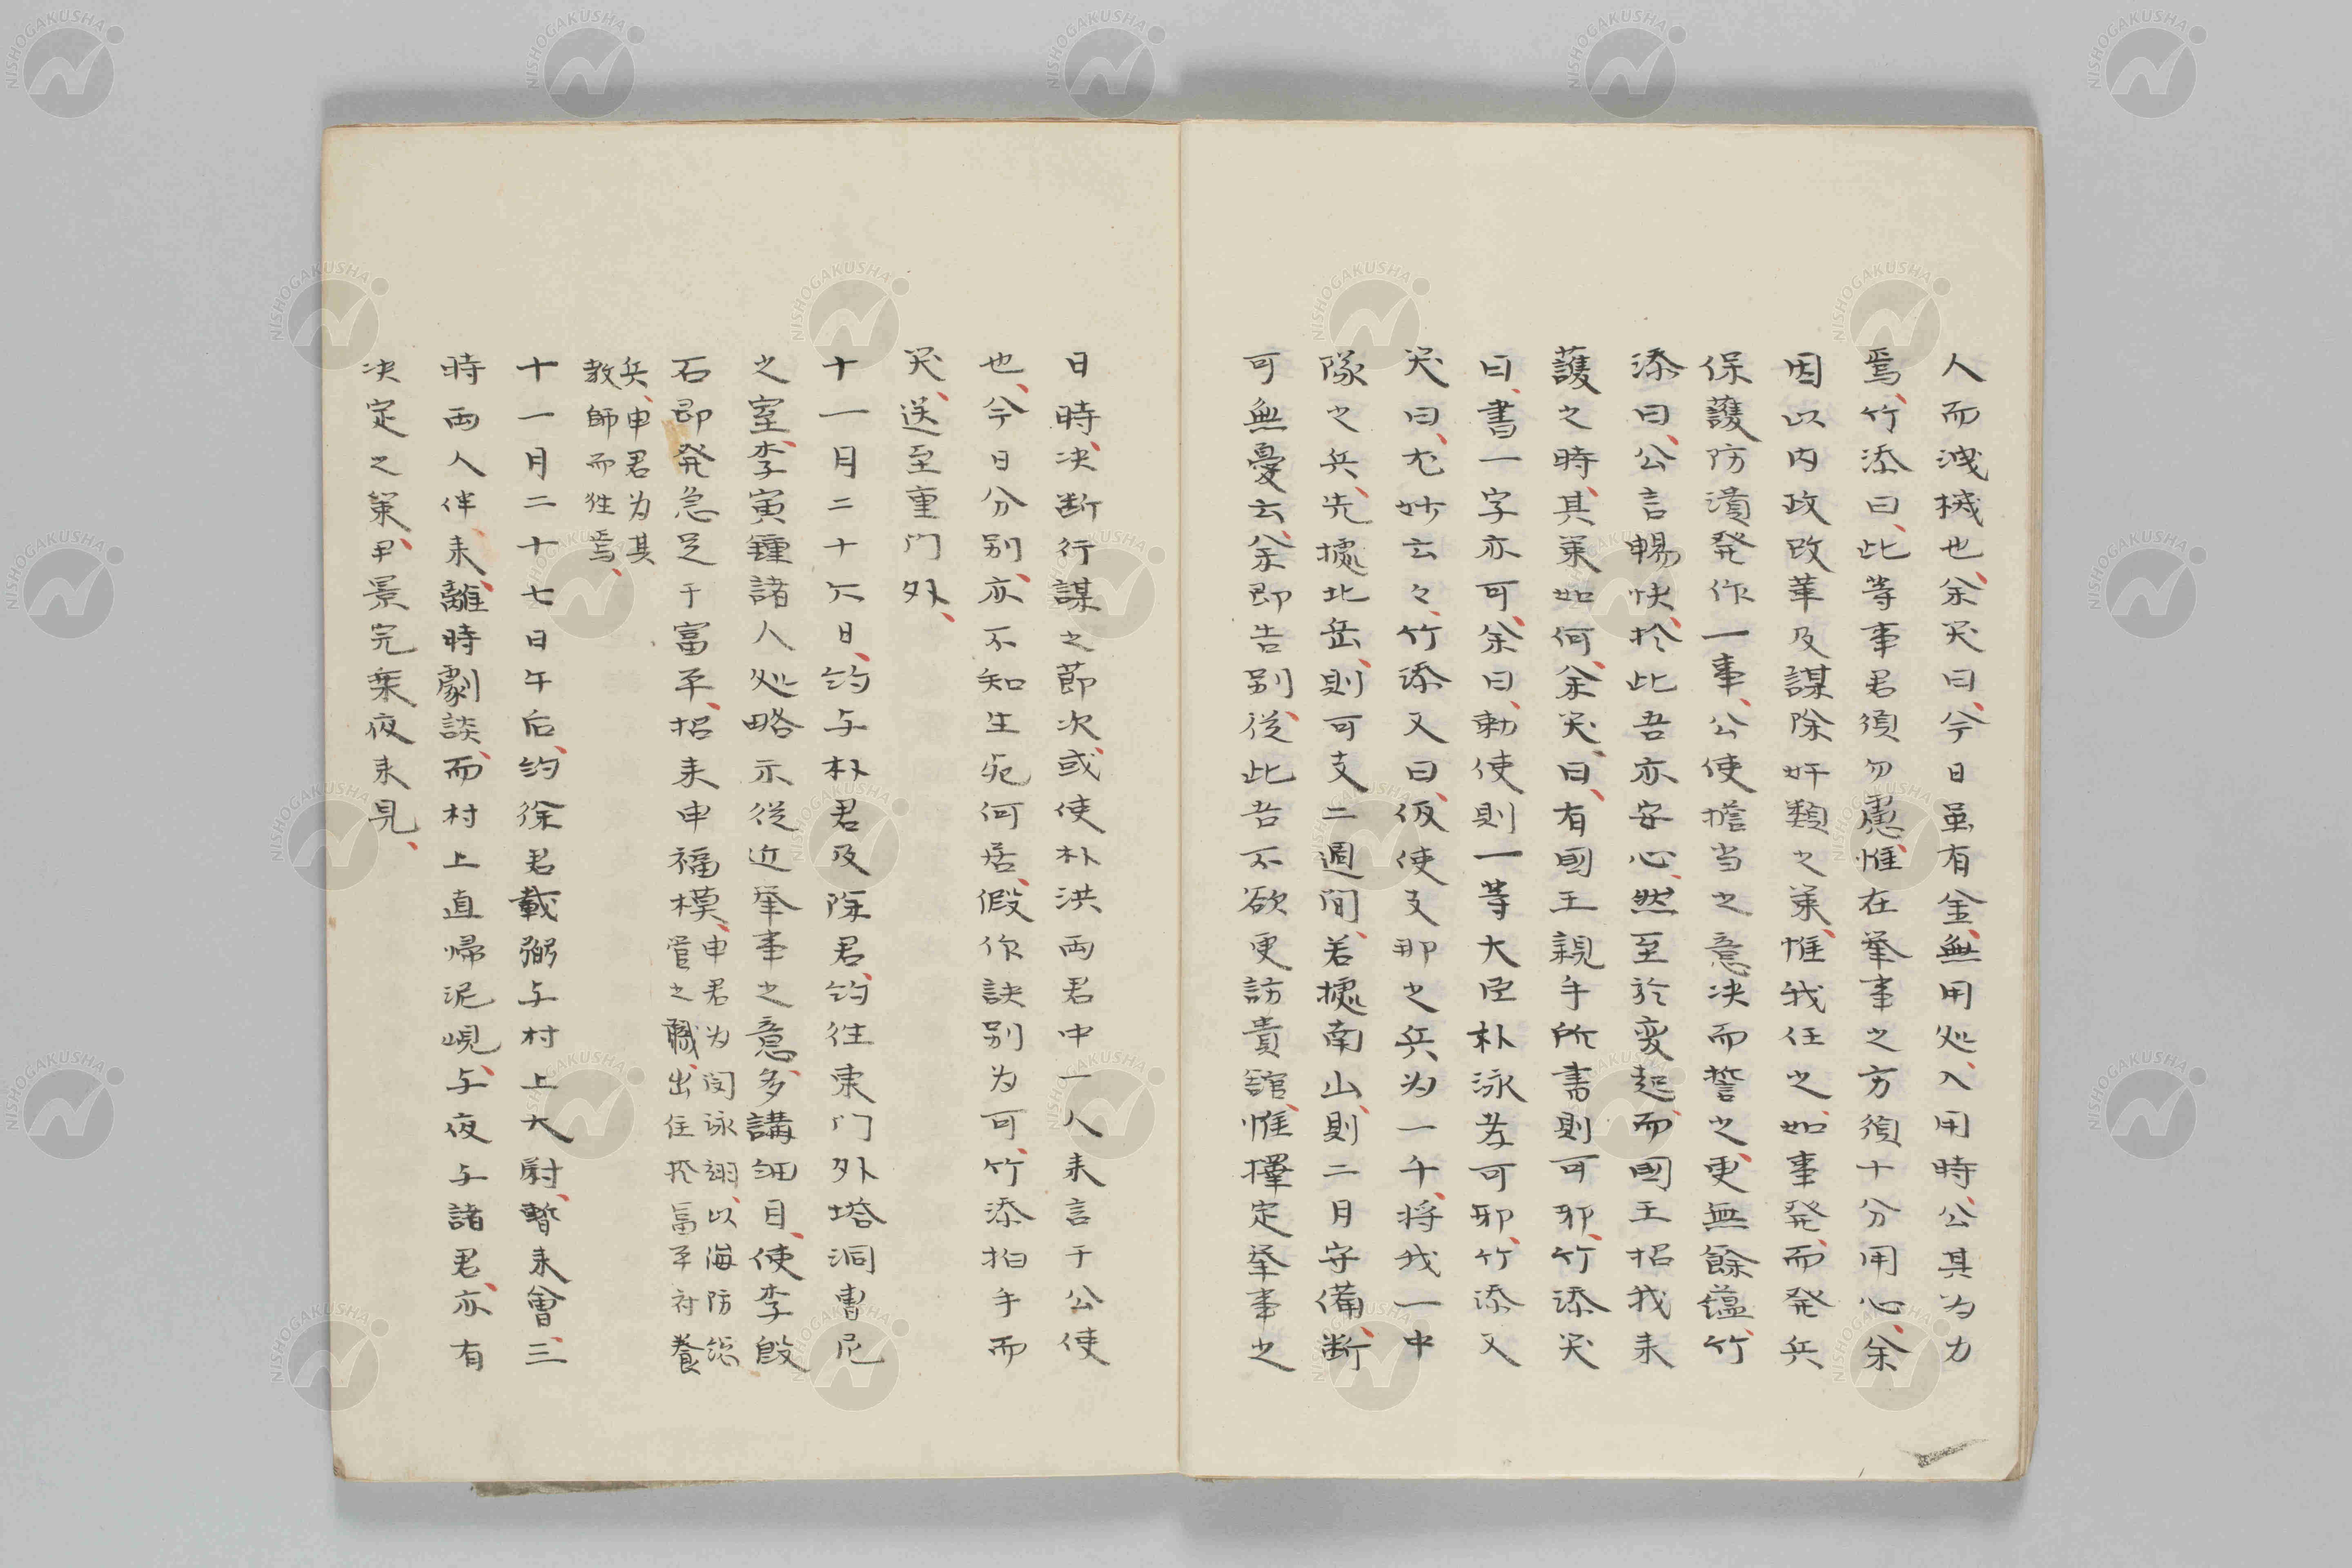 人而洩機也、余笑曰、今日虽有金、無用処、入用時、公其为力
焉、竹添曰、此等事君須勿慮、惟在挙事之方須十分用心、余
因以内政改革及謀除奸類之策、惟我任之、如事発、而発兵
保護防潰発作一事、公使擔当之意决而誓之、更無餘蘊、竹
添曰、公言暢快、於此吾亦安心、然至於変起、而國王招我来
護之時、其策如何、余笑曰、有國王親手所書則可邪、竹添笑
曰、書一字亦可、余曰、勅使則一等大臣朴泳孝可邪、竹添又
笑曰、尤妙云々、竹添又曰、仮使支那之兵为一千、将我一中
隊之兵、先據北岳、則可支二週间、若據南山、則二月守備、断
可無憂云、余即告别、従此吾不欲更訪貴舘、惟擇定挙事之
日時、决断行謀之節次、或使朴洪两君中一人来言于公使
也、今日分别、亦不知生死何居、假作訣别为可、竹添拍手而
笑、送至重门外、
十一月二十六日、约与朴君及除君、约往東门外塔洞曺尼
之室、李寅鍾諸人処略示従近挙事之意、多講细目、使李殷
石即発急足于富平、招来申福模、申君为閔泳翊、以海防総
管之職、出住於富平府養
兵、申君为其
教師而往焉、
十一月二十七日午后、约徐君載弼与村上大尉、暫来會、三
時两人伴来、離時劇談、而村上直帰泥峴、与夜与諸君、亦有
决定之策、尹景完乗夜来見、